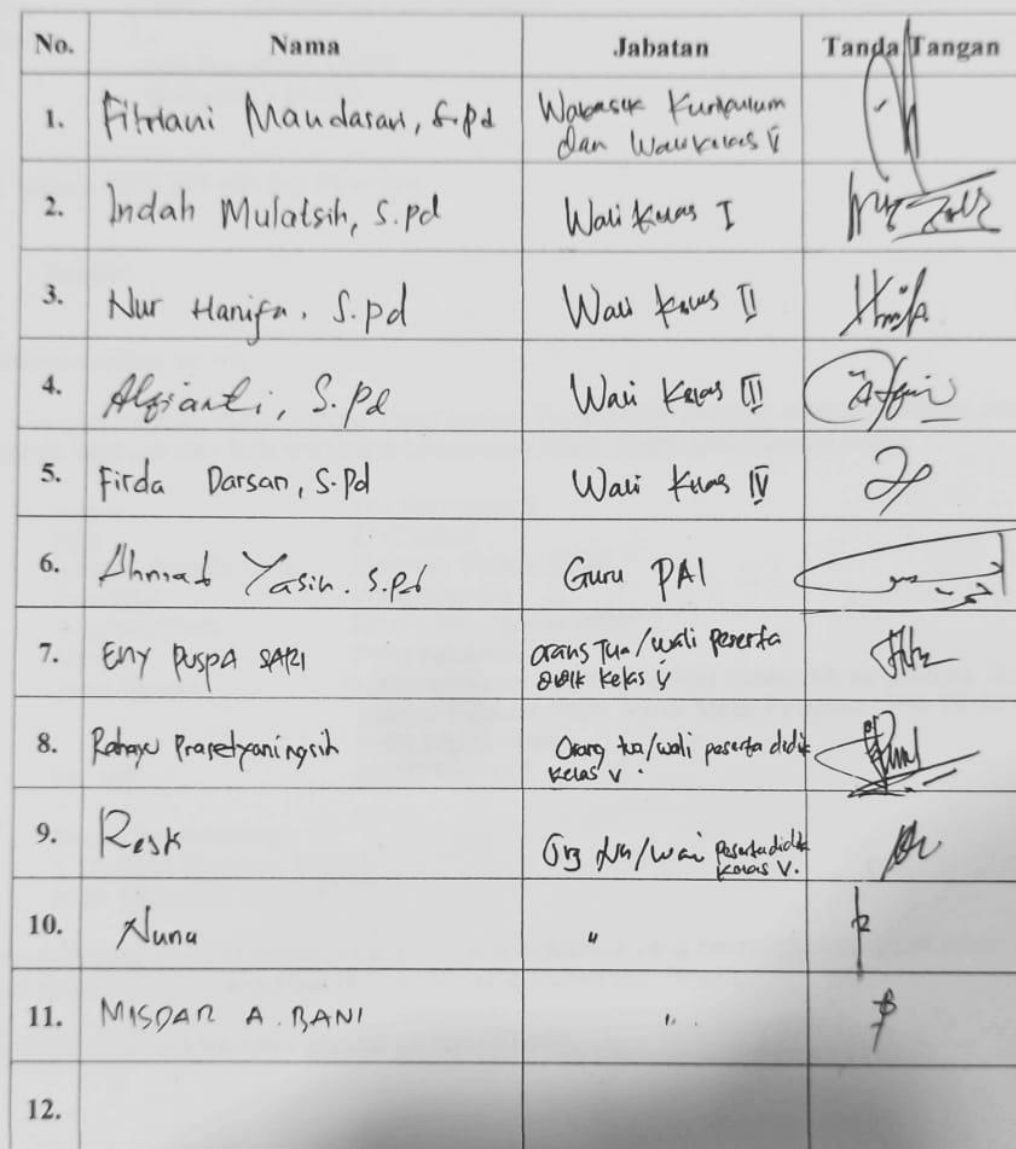 No. Nama Jabatan Tanda Tangan
1. Fitriani Mandasari, S.Pd Wakasek Kurikulum
dan Walikelas V
2. Indah Mulatsih, S.pd Wali Kelas I
3. Nur Hanifa. S.pd Wali Kelas II
4. Alfianti, S.Pd Wali Kelas III
5. Firda Darsan, S.Pd Wali Kelas IV
6. Ahmad Yasin. S.Pd Guru PAI
7. ENY PUSPA SARI orang Tua/wali peserta
didik kelas V
8. Rahayu Prasetyaningsih Orang tua/wali peserta didik
kelas V.
9. Resk Org tua/wali peserta didik
kelas V.
10. Nunu "
11. MISDAR A. RANI "
12.